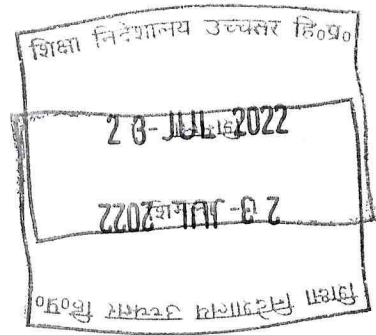 शिक्षा निदेशालय उच्चतर हि०प्र०
JUL 2022
JUL 2022
शिक्षा निदेशालय उच्चतर हि०प्र०